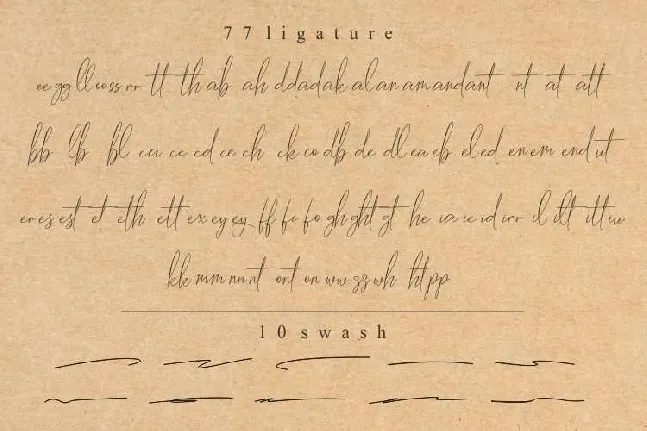 77 ligature
ee gg ll oo ss rr tt th ab ah dd ad ak al an am and ant nt at att
bb lb bl cu cc cd ce ch ck co db de dl ea eb el ed en em end ut
er es est et eth ett ex ey ey ff fe fo gh ght gt he ia ic id irr il ilt itt ue
kk mm nn nt ort on ww zz wh ht pp
10 swash